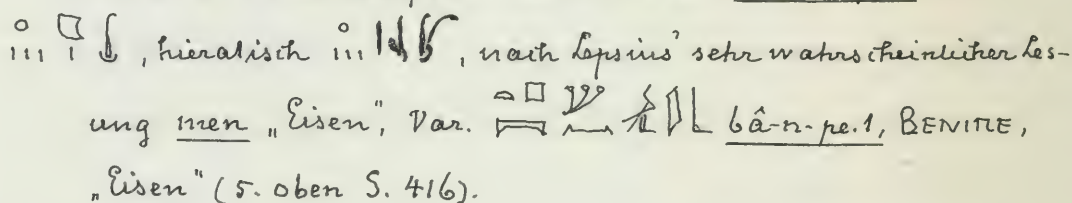 , hieratisch , nach Lepsius' sehr wahrscheinlicher Les-
ung men „Eisen", Var. bâ-n-pe.t, ⲂⲈⲚⲒⲠⲈ,
„Eisen" (s. oben S. 416).